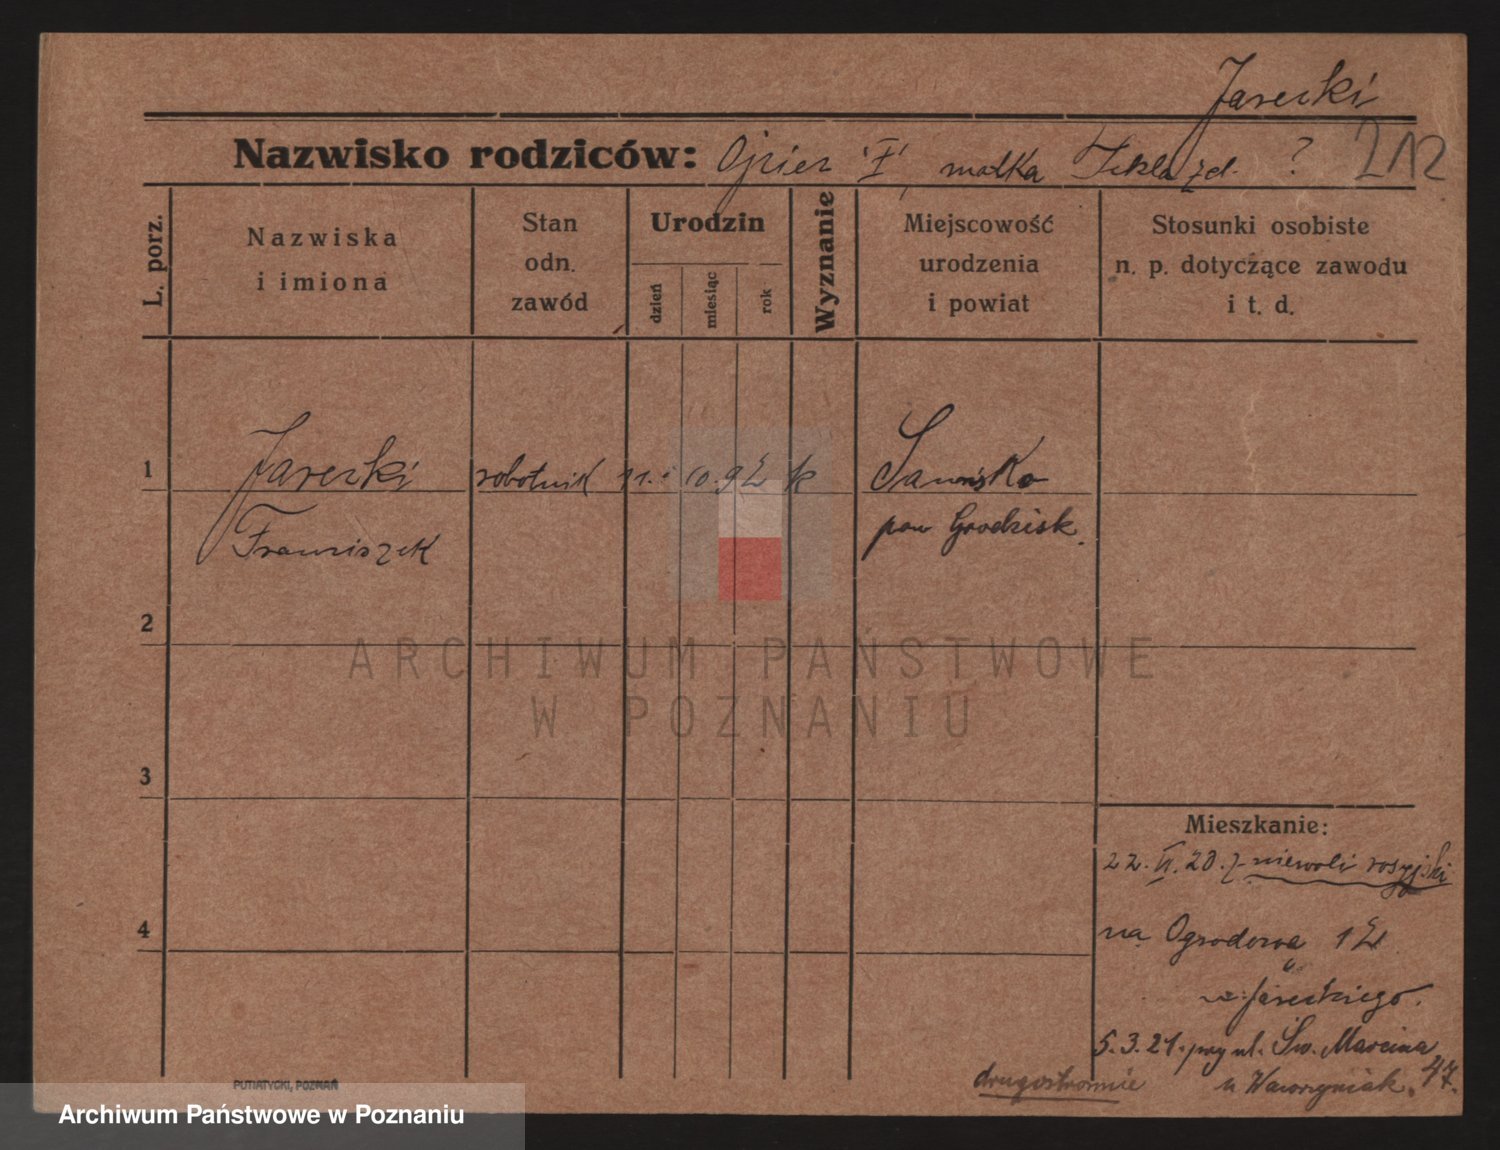 Jarecki
Nazwisko rodziców: Ojciec "F", matka Tekla zd. ? 212
L. porz.
Nazwiska
i imiona
Stan
odn.
zawód
Urodzin
dzień
miesiąc
rok
Wyznanie
Miejscowość
urodzenia
i powiat
Stosunki osobiste
n. p. dotyczące zawodu
i t. d.
1
Jarecki
Franciszek
robotnik
11. 10. 92
k
Sarnisko
pow Grodzisk.
2
3
4
Mieszkanie:
22. VI. 20. z niewoli rosyjski
na Ogrodową 12
Jareckiego.
5.3.21. przy ul. Św. Marcina 47.
u Wawrzyniak.
drugostronnie
PUTIATYCKI, POZNAŃ
ARCHIWUM PAŃSTWOWE
W POZNANIU
Archiwum Państwowe w Poznaniu